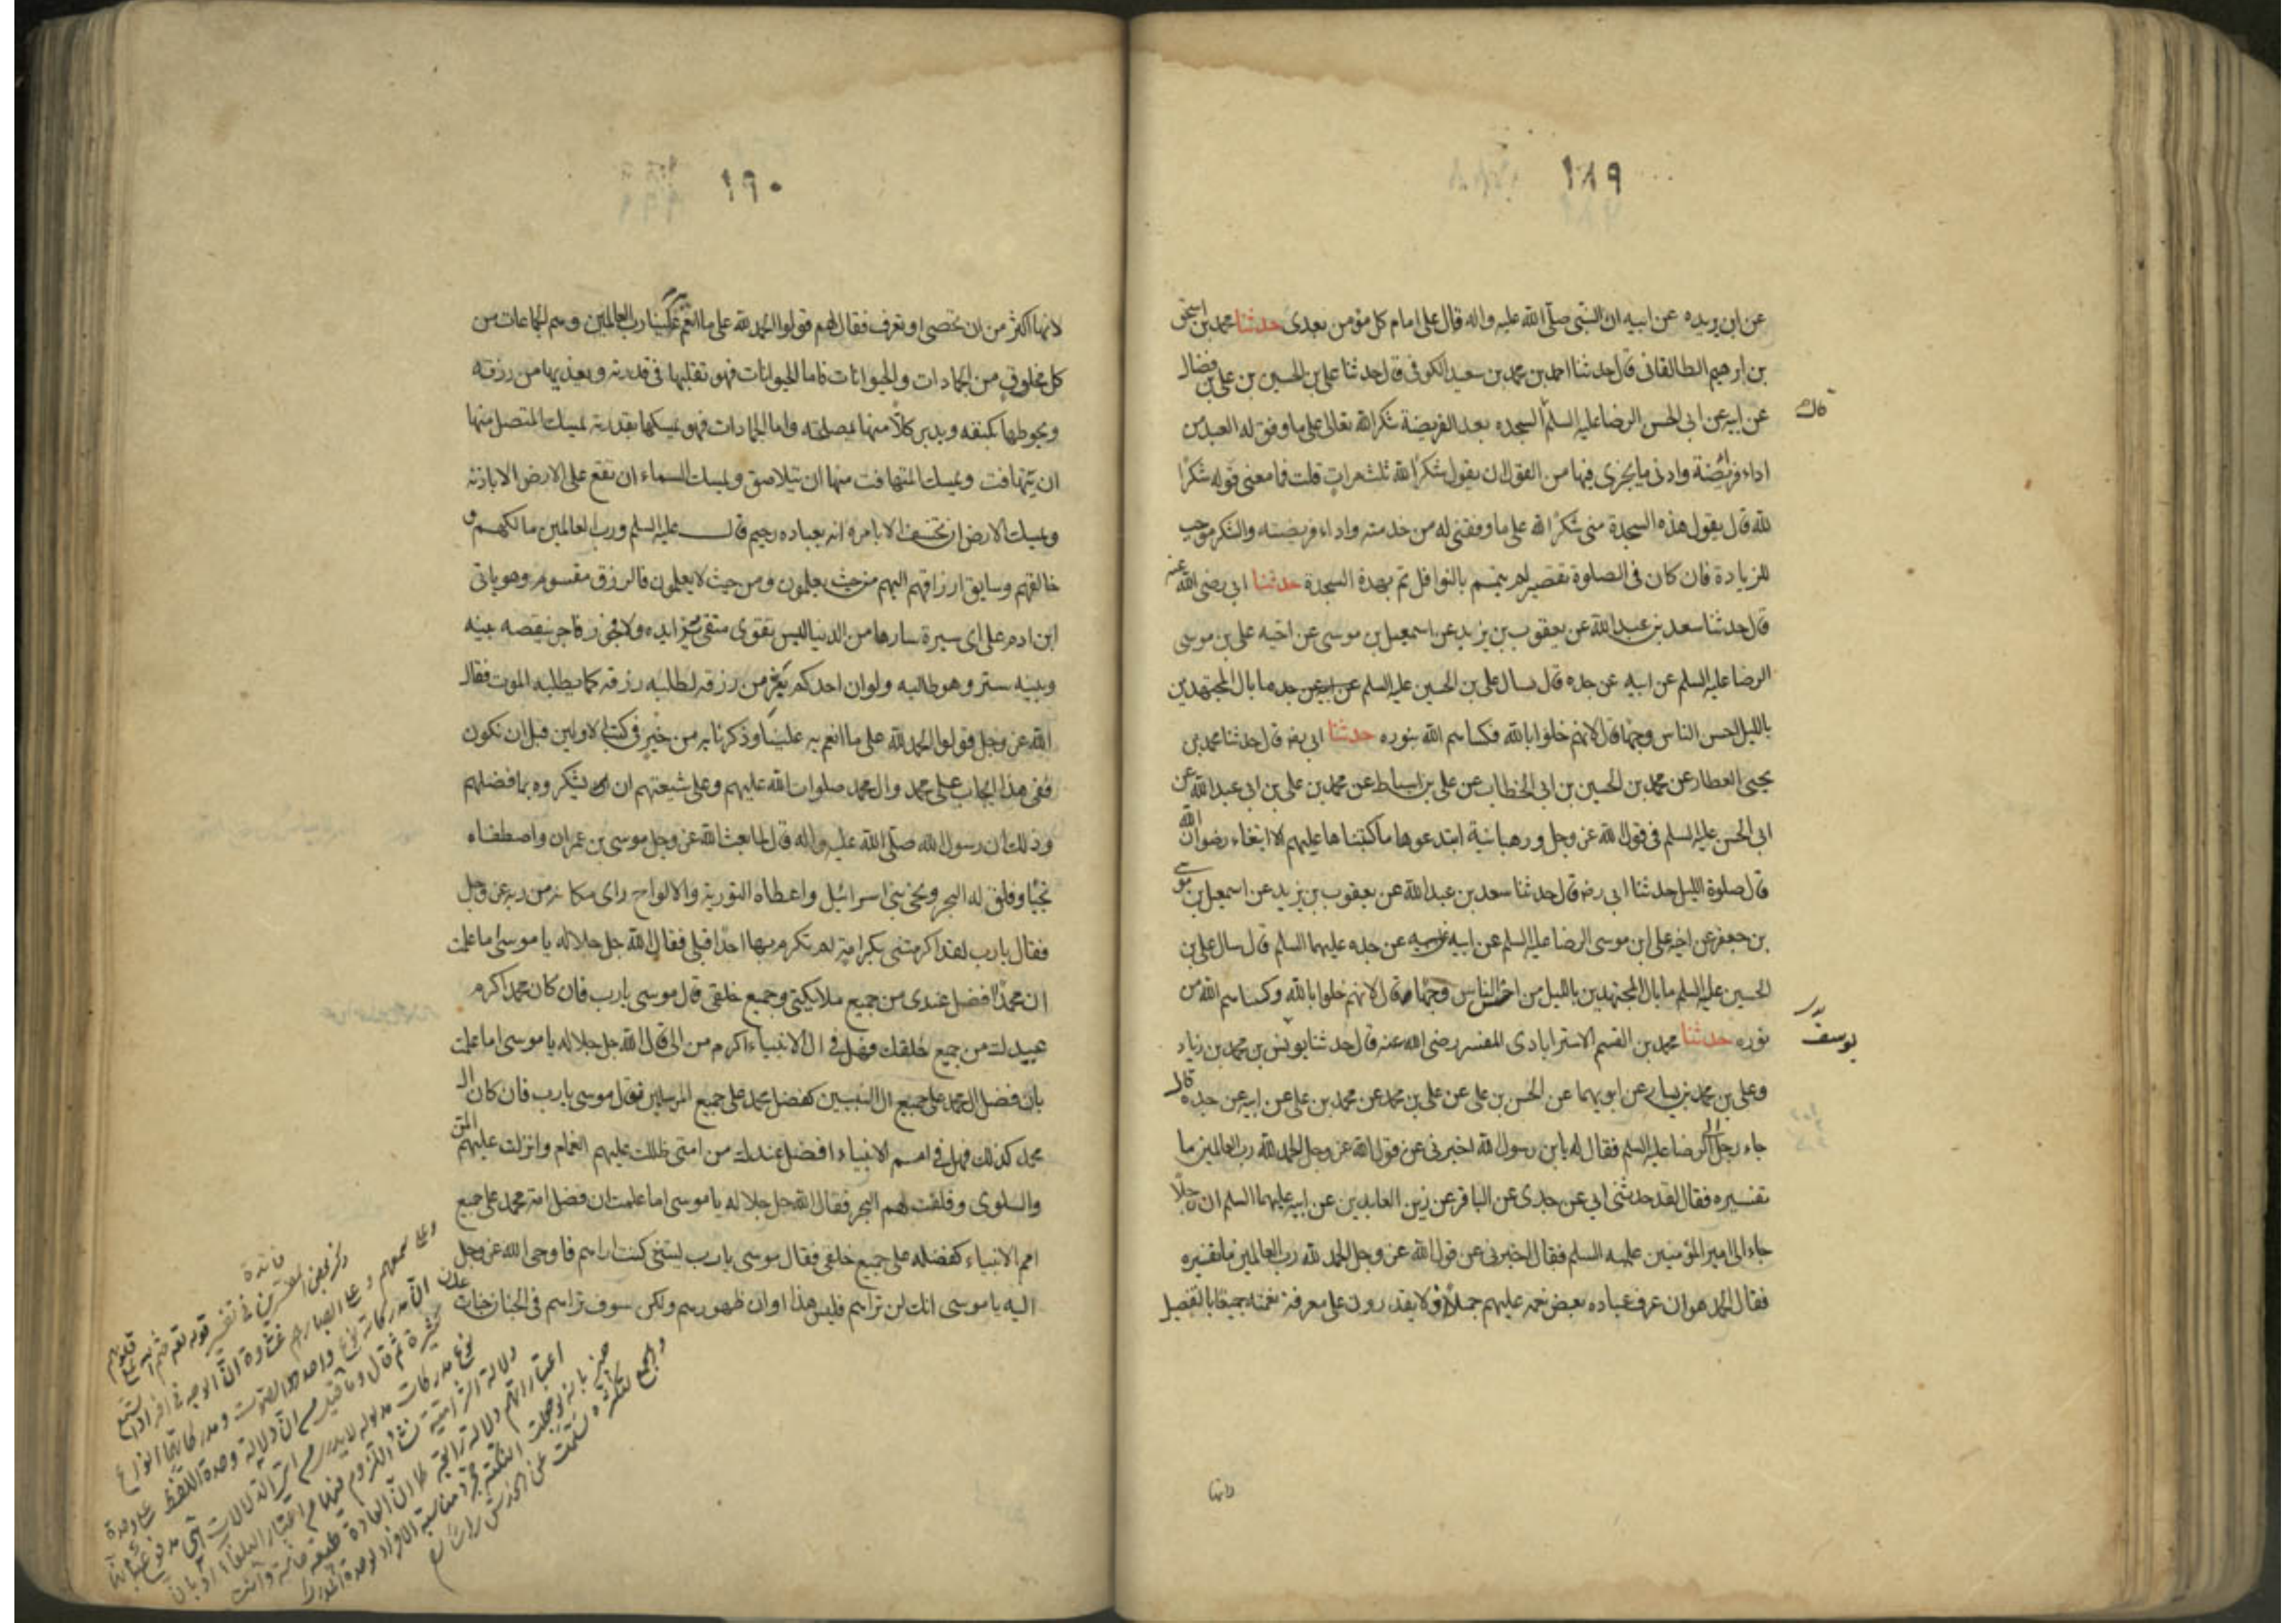 ١٨٩
عن ابن بريده عن ابيه ان النبى صلّى الله عليه واله قال على امام كل مؤمن بعدى حدثنا محمد بن اسحق
بن ابرهيم الطالقانى قال حدثنا احمد بن محمد بن سعيد الكوفى قال حدثنا على بن الحسين بن على بن فضال
عن ابيه عن ابى الحسن الرضا عليه السلم السجده بعد الفريضة شكرا لله تعالى على ما وفق له العبد من
قال
اداء فريضة وادنى ما يجزى فيها من القول ان يقول شكرًا لله ثلث مرات قلت فما معنى قوله شكرًا
لله قال يقول هذه السجدة منى شكرًا لله على ما وفقنى له من خدمته واداء فريضته والشكر موجب
للزيادة فان كان فى الصلوة تقصير لم يتم بالنوافل تم بهذه السجدة حدثنا ابى رضى الله عنه
قال حدثنا سعد بن عبد الله عن يعقوب بن يزيد عن اسمعيل بن موسى عن اخيه على بن موسى
الرضا عليه السلم عن ابيه عن جده قال سال على بن الحسين عليه السلم عن ابيه عن جده ما بال المجتهدين
بالليل احسن الناس وجها قال لانهم خلوا بالله فكساهم الله بنوره حدثنا ابى رضه قال حدثنا محمد بن
يحيى العطار عن محمد بن الحسين بن ابى الخطاب عن على بن اسباط عن محمد بن على بن ابى عبد الله عن
ابى الحسن عليه السلم فى قول الله عز وجل ورهبانية ابتدعوها ما كتبناها عليهم الا ابتغاء رضوان الله
قال صلوة الليل حدثنا ابى رضه قال حدثنا سعد بن عبد الله عن يعقوب بن يزيد عن اسمعيل بن موسى
بن جعفر عن اخيه على ابن موسى الرضا عليه السلم عن ابيه عن جده عليهما السلم قال سال على بن
الحسين عليه السلم ما بال المجتهدين بالليل من احسن الناس وجهًا قال لانهم خلوا بالله وكساهم الله من
نوره حدثنا محمد بن القسم الاسترابادى المفسر رضى الله عنه قال حدثنا يونس بن محمد بن زياد
يوسف
وعلى بن محمد بن يسار عن ابويهما عن الحسن بن على عن على بن محمد عن محمد بن على عن ابيه عن جده قال
جاء رجل الى الرضا عليه السلم فقال له يابن رسول الله اخبرنى عن قول الله عز وجل الحمد لله رب العالمين ما
تفسيره فقال لقد حدثنى ابى عن جدى عن الباقر عن زين العابدين عن ابيه عليهما السلم ان رجلًا
جاء الى امير المؤمنين عليه السلم فقال اخبرنى عن قول الله عز وجل الحمد لله رب العالمين ما تفسيره
فقال الحمد لله هو ان عرف عباده بعض نعمه عليهم جملًا اذ لا يقدرون على معرفة نعمته جميعها بالتفصيل
لانها
١٩٠
لانها اكثر من ان تحصى او تعرف فقال لهم قولوا الحمد لله على ما انعم به علينا رب العالمين وهم الجماعات من
كل مخلوق من الجمادات والحيوانات فاما الحيوانات فهو تقلبها فى قدرته ويغذيها من رزقه
ويحوطها بكنفه ويدبر كلًا منها بمصلحته واما الجمادات فهو يمسكها بقدرته يمسك المتصل منها
ان يتهافت ويمسك المتهافت منها ان يتلاصق ويمسك السماء ان تقع على الارض الا باذنه
ويمسك الارض ان تنخسف الا بامره انه بعباده رحيم قال عليه السلم ورب العالمين مالكهم و
خالقهم وسايق ارزاقهم اليهم من حيث يعلمون ومن حيث لا يعلمون فالرزق مقسوم وهو ياتى
ابن ادم على اى سيرة سارها من الدنيا ليس تقوى متقى بزايده ولا فجور فاجر بناقصه بينه
وبينه ستر وهو طالبه ولو ان احدكم يفر من رزقه لطلبه رزقه كما يطلبه الموت فقال
الله عز وجل قولوا الحمد لله على ما انعم به علينا وذكرنا به من خير فى كتب الاولين قبل ان نكون
ففى هذا ايجاب على محمد وال محمد صلوات الله عليهم وعلى شيعتهم ان يشكروه بما فضلهم
وذلك ان رسول الله صلّى الله عليه واله قال لما بعث الله عز وجل موسى بن عمران واصطفاه
نجيًا وفلق له البحر ونجى بنى اسرائيل واعطاه التورية والالواح راى مكانه من ربه عز وجل
فقال يا رب لقد اكرمتنى بكرامة لم تكرم بها احدًا قبلى فقال الله جل جلاله يا موسى اما علمت
ان محمدًا افضل عندى من جميع ملايكتى وجميع خلقى قال موسى يا رب فان كان محمد اكرم
عبيدك من جميع خلقك فهل فى ال الانبياء اكرم من الى قال الله جل جلاله يا موسى اما علمت
بان فضل ال محمد على جميع ال النبيين كفضل محمد على جميع المرسلين فقال موسى يا رب فان كان ال
محمد كذلك فهل فى امم الانبياء افضل عندك من امتى ظللت عليهم الغمام وانزلت عليهم المن
والسلوى وفلقت لهم البحر فقال الله جل جلاله يا موسى اما علمت ان فضل امة محمد على جميع
امم الانبياء كفضله على جميع خلقى فقال موسى يا رب ليتنى كنت اراهم فاوحى الله عز وجل
اليه يا موسى انك لن تراهم فليس هذا اوان ظهورهم ولكن سوف تراهم فى الجنان جنات
عدن
فائدة
ذكر بعض المفسرين فى تفسير
قوله تعالى ختم الله على قلوبهم
وعلى سمعهم وعلى ابصارهم غشاوة